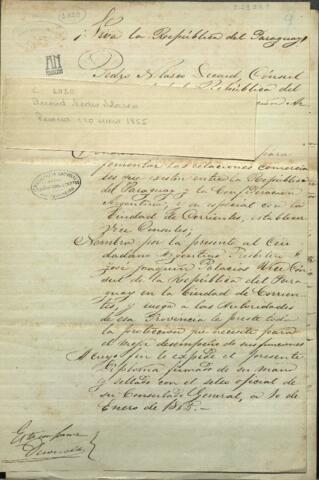 ¡Viva la República del Paraguay!
Pedro Nolasco Decoud, Cónsul
República del
C 2020
Decoud Pedro Nolasco
Paraná 10 enero 1855
para
fomentar las relaciones comercia
les que existen entre la República
del Paraguay y la Confederacion
Argentina, y en especial con la
Ciudad de Corrientes, establecer
Vice Consules;
Nombra por la presente al Ciu
dadano Argentino Presbítero D.
José Joaquin Palacios Vice Cón
sul de la República del Para
guay en la Ciudad de Corrien
tes, y ruega a las Autoridades
de esa Provincia le preste toda
la proteccion que necesite para
el mejor desempeño de sus funciones
A cuyo fin le expide el presente
Diploma firmado de su mano
y sellado con el sello oficial de
su Consulado General, a 10 de
Enero de 1865.-
Es conforme
Decoud